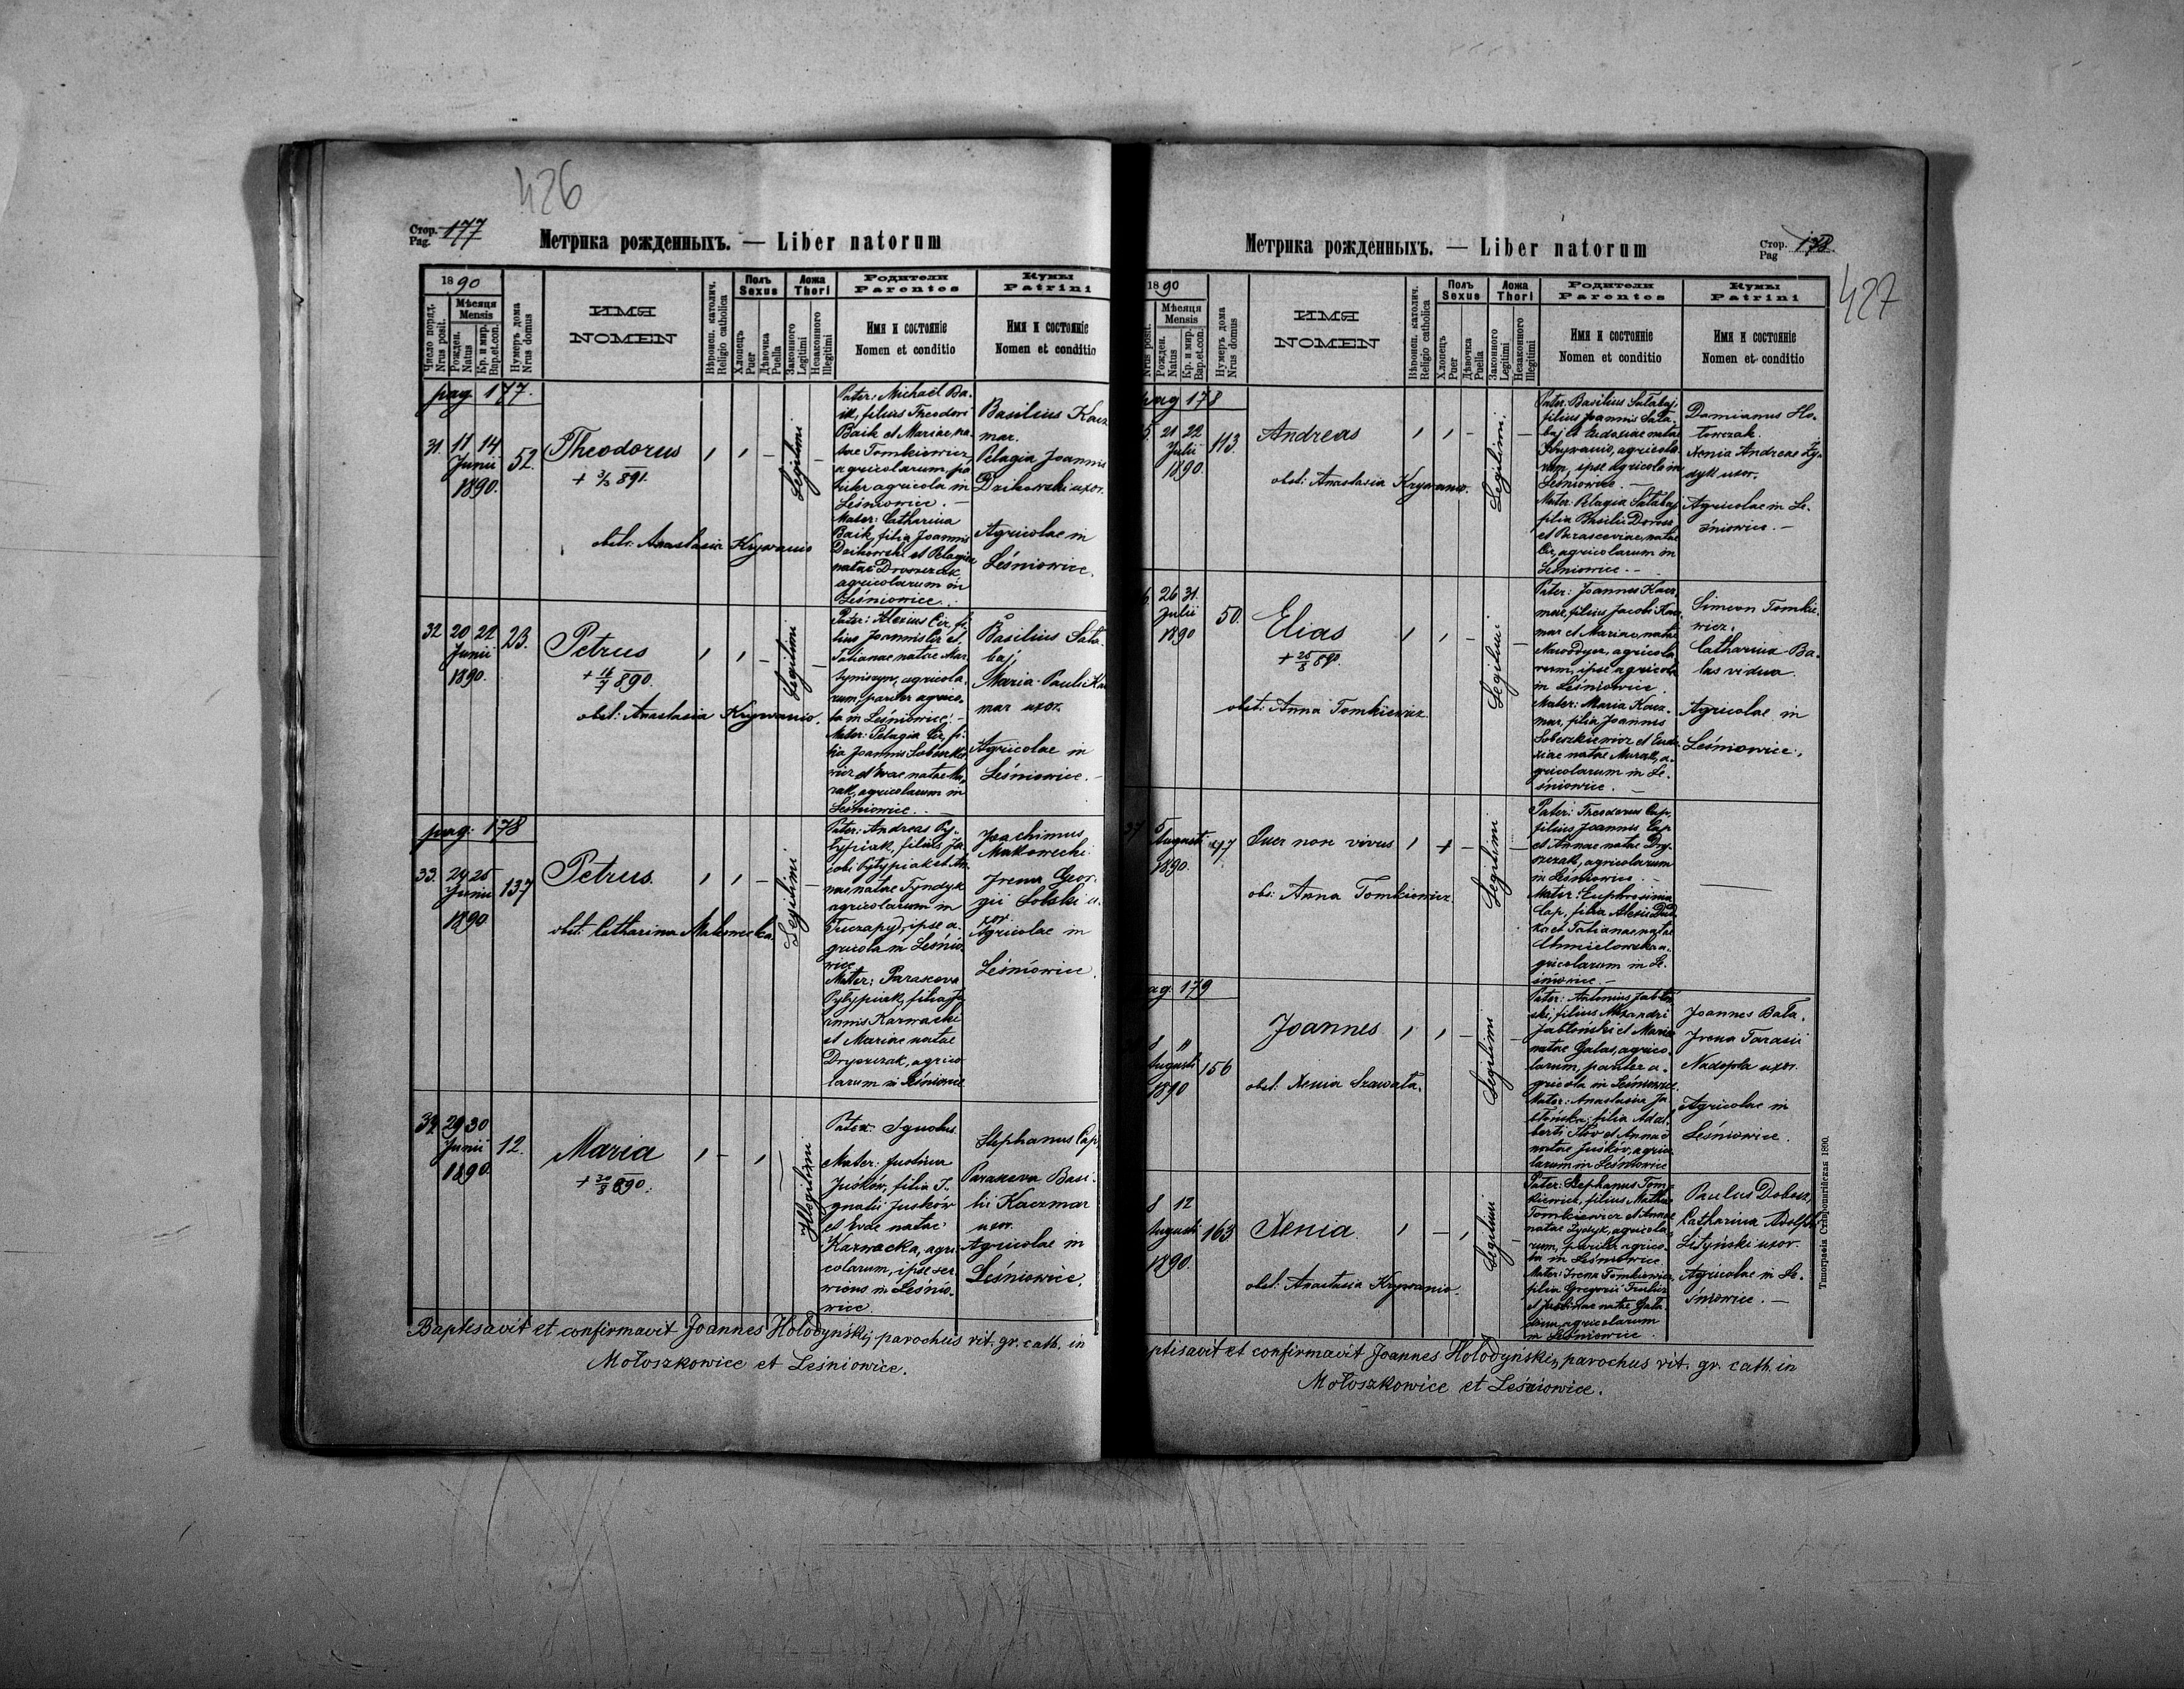 426
Стор. Pag. 177
Метрика рожденныхъ. — Liber natorum
1890
Число поряд. Nrus posit.
Мѣсяця Mensis
Рожден. Natus
Кр. и мир. Bap. et con.
Нумеръ дома Nrus domus
ИМЯ
NOMEN
Вѣроисп. католич. Religio catholica
Полъ Sexus
Хлопець Puer
Дѣвочка Puella
Ложа Thori
Законного Legitimi
Незаконного Illegitimi
Родители Parentes
Имя и состояніе
Nomen et conditio
Кумы Patrini
Имя и состояніе
Nomen et conditio
pag. 177.
31. 11 14
Junii
1890.
52.
Theodorus
+ 3/3 891.
obstr. Anastasia Krywanio
Legitimi
Pater: Michaël Ba-
ik, filius Theodori
Baik et Mariae, na-
tae Tomkiewicz,
agricolarum, pa-
riter agricola in
Leśniowice. —
Mater: Catharina
Baik, filia Joannis
Dzikowski et Pelagiae
natae Drozczak
agricolarum in
Leśniowice.
Basilius Kacz
mar.
Pelagia Joannis
Dzikowski uxor.
Agricolae in
Leśniowice.
32 20 22
Junii
1890.
23.
Petrus
+ 16/7 890.
obst. Anastasia Krywanio.
Legitimi
Pater: Alexius Cir, fi-
lius Joannis Cir et
Tatianae natae Mar-
tyniszyn, agricola-
rum, pariter agrico-
la in Leśniowice. —
Mater: Pelagia Cir, fi-
lia Joannis Sobeszkie
wicz et Evae natae Mu-
rak, agricolarum in
Leśniowice. —
Basilius Sała-
baj,
Maria Pauli Kacz
mar uxor.
Agricolae in
Leśniowice. —
pag: 178
33. 24 25
Junii
1890
137
Petrus.
obst. Catharina Makowecka.
Legitimi
Pater: Andreas Py-
typiak, filius Ja-
cobi Pytypiak et An-
nae natae Tyndyk
agricolarum in
Tuczapy, ipse a-
gricola in Leśnio-
wice
Mater: Parasceva
Pytypiak, filia Jo-
annis Karwacki
et Mariae natae
Dryszczak, agrico-
larum in Leśniowice
Joachimus
Makowecki
Irena Geor-
gii Sobski u-
xor.
Agricolae in
Leśniowice.
34 29 30
Junii
1890
12.
Maria
+ 30/8 890.
Illegitimi
Pater: Ignotus.
Mater: Justina
Juśków, filia I-
gnatii Juśków
et Evae natae
Karwacka, agri-
colarum, ipse ser-
viens in Leśnio-
wice.
Stephanus Cap
Parasceva Basi-
lii Kaczmar
uxor.
Agricolae in
Leśniowice.
Baptisavit et confirmavit Joannes Hołodyński, parochus rit. gr. cath. in
Mołoszkowice et Leśniowice.
Метрика рожденныхъ. — Liber natorum
Стор. Pag 178.
427
1890
Nrus posit.
Мѣсяця Mensis
Рожден. Natus
Кр. и мир. Bap. et con.
Нумеръ дома Nrus domus
ИМЯ
NOMEN
Вѣроисп. католич. Religio catholica
Полъ Sexus
Хлопець Puer
Дѣвочка Puella
Ложа Thori
Законного Legitimi
Незаконного Illegitimi
Родители Parentes
Имя и состояніе
Nomen et conditio
Кумы Patrini
Имя и состояніе
Nomen et conditio
pag 178
5. 21 22
Julii
1890.
113.
Andreas
obst: Anastasia Krywanio.
Legitimi.
Pater: Basilius Sałabaj,
filius Joannis Sała-
baj et Eudoxiae natae
Krywanio, agricola-
rum, ipse agricola in
Leśniowice. —
Mater: Pelagia Sałabaj
filia Basilii Dorosz
et Parasceviae, natae
Cir, agricolarum in
Leśniowice. —
Damianus Ho-
towczak.
Xenia Andreas Zy-
dyk uxor.
Agricolae in Le-
śniowice. —
6. 26 31.
Julii
1890
50.
Elias
+ 25/8 890.
obst: Anna Tomkiewicz
Legitimi
Pater: Joannes Kacz
mar, filius Jacobi Kacz
mar et Mariae, natae
agricola-
rum, ipse agricola
in Leśniowice.
Mater: Maria Kacz-
mar, filia Joannis
Sobeszkiewicz et Eudo-
xiae natae Murak, a-
gricolarum in Le-
śniowice. —
Simeon Tomkie-
wicz.
Catharina Ba-
las vidua.
Agricolae in
Leśniowice.
37 5
Augusti
1890.
47
Puer non vivus
obs: Anna Tomkiewicz.
Legitimi
Pater: Theodorus Cap,
filius Joannis Cap
et Annae natae Dry-
szczak, agricolarum
in Leśniowice. —
Mater: Euphrosinia
Cap, filia Alexii Dud
ka et Tatianae natae
Chmielowska a-
gricolarum in Le-
śniowice. —
pag. 179
8 11
Augusti
1890
156
Joannes
obst. Xenia Szawała.
Legitimi
Pater: Antonius Jabłoń
ski, filius Alexandri
Jabłoński et Mariae
natae Galas, agrico-
larum, pariter a-
gricola in Leśniowice.
Mater: Anastasia Ja-
błońska, filia Adal-
berti et Annae
natae Juśków, agrico
larum in Leśniowice
Joannes Bała.
Irena Tarasii
Nadopta uxor.
Agricolae in
Leśniowice.
8 12
Augusti
1890.
163
Xenia.
obst. Anastasia Krywanio.
Legitimi
Pater: Stephanus Tom-
kiewicz, filius Mathia
Tomkiewicz et Annae
natae Zydyk, agricola-
rum, pariter agrico-
la in Leśniowice.
Mater: Irena Tomkiewicz,
filia Gregorii
et Justinae natae
agricolarum
in Leśniowice.
Paulus Dobosz,
Catharina Adolphi
Lityński uxor.
Agricolae in Le-
śniowice. —
Baptisavit et confirmavit Joannes Hołodyński, parochus rit. gr. cath. in
Mołoszkowice et Leśniowice.
Типографія Ставропигійская 1890.